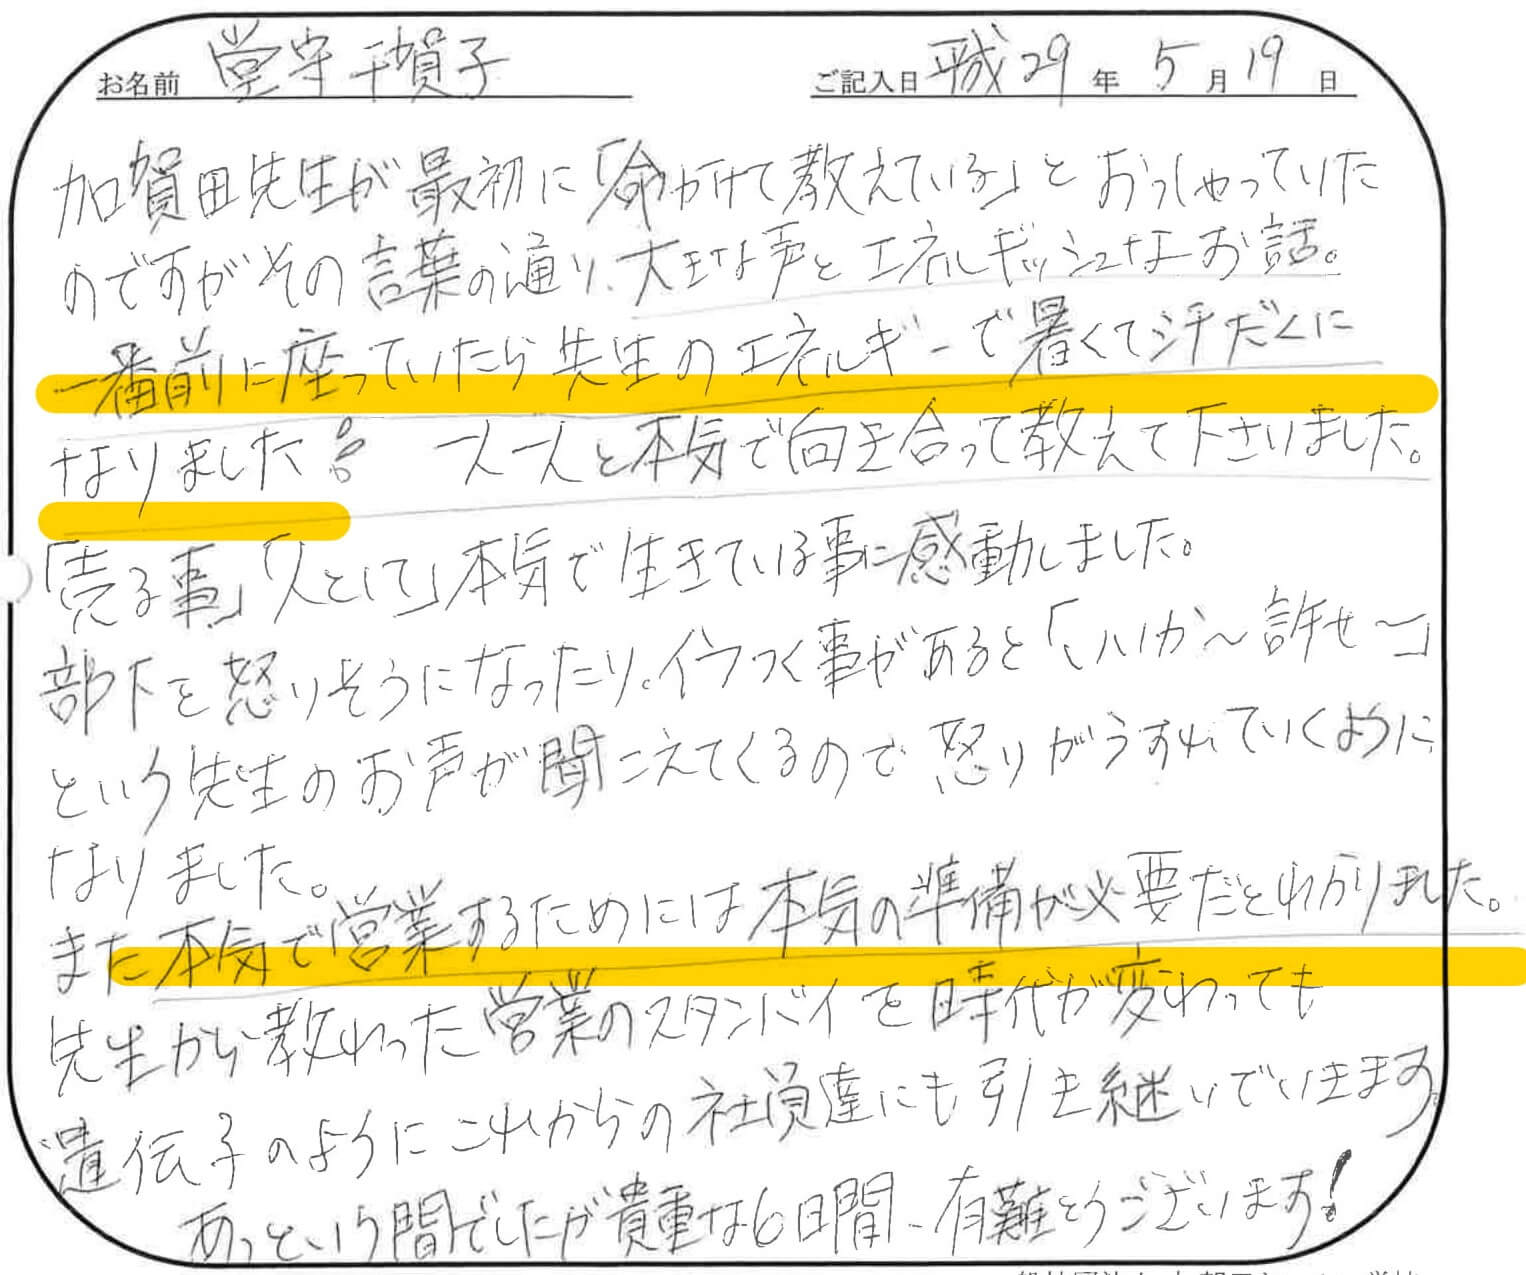 お名前 堂守千賀子 ご記入日 平成29年5月19日
加賀田先生が最初に「命がけで教えている」とおっしゃっていた
のですがその言葉の通り、大きな声とエネルギッシュなお話。
一番前に座っていたら先生のエネルギーで暑くて汗だくに
なりました!! 一人一人と本気で向き合って教えて下さいました。
「売る事」「人として」本気で生きている事に感動しました。
部下を怒りそうになったり、イラつく事があると「いいか〜許せ〜」
という先生のお声が聞こえてくるので怒りがうすれていくように
なりました。
また本気で営業するためには本気の準備が必要だとわかりました。
先生から教わった営業のスタンバイを時代が変わっても
遺伝子のようにこれからの社員達にも引き継いでいきます。
あっという間でしたが貴重な6日間、有難とうございます!